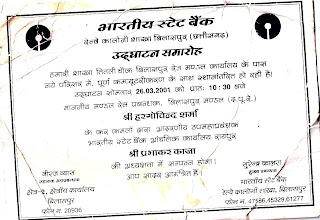 भारतीय स्टेट बैंक
रेल्वे कालोनी शाखा बिलासपुर (छत्तीसगढ़)
उद्घाटन समारोह
हमारी शाखा तितली चौक बिलासपुर रेल मण्डल कार्यालय के पास
नये परिसर में, पूर्ण कम्प्यूटरीकरण के साथ स्थानांतरित हो रही है।
उद्घाटन सोमवार 26.03.2001 को प्रातः 10:30 बजे
माननीय मण्डल रेल प्रबन्धक, बिलासपुर मण्डल (द.पू.रे.)
श्री हरगोविन्द शर्मा
के कर कमलों द्वारा आदरणीय उपमहाप्रबंधक
भारतीय स्टेट बैंक आंचलिक कार्यालय रायपुर
श्री प्रभाकर काजा
की अध्यक्षता में सम्पन्न होगा।
आप सादर आमंत्रित है।
नीरज व्यास
सहायक महाप्रबंधक
क्षेत्र-2, क्षेत्रीय कार्यालय
बिलासपुर
फोन नं. 20936
सुरिन्दर कालरा
शाखा प्रबंधक
भारतीय स्टेट बैंक
रेल्वे कालोनी शाखा, बिलासपुर
फोन नं. 47586,45329,61277